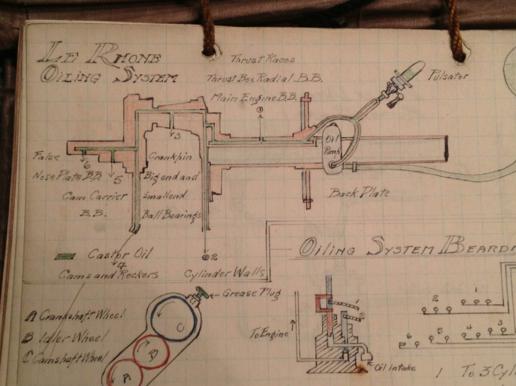 Le Rhone
Oiling System
Thrust Races
Thrust Box Radial B.B.
Main Engine B.B.
Pulsator
1
3
Oil
Pump
False
Nose Plate B.B.
6
5
Cam Carrier
B.B.
Crankpin
Big end and
Small end
Ball Bearings
Back Plate
Castor Oil
4
2
Cams and Rockers
Cylinder Walls
Oiling System Beardm
Grease Plug
A Crankshaft Wheel
B Idler Wheel
C Camshaft Wheel
C
B
A
To Engine
Oil intake
1 To 3 Cyl